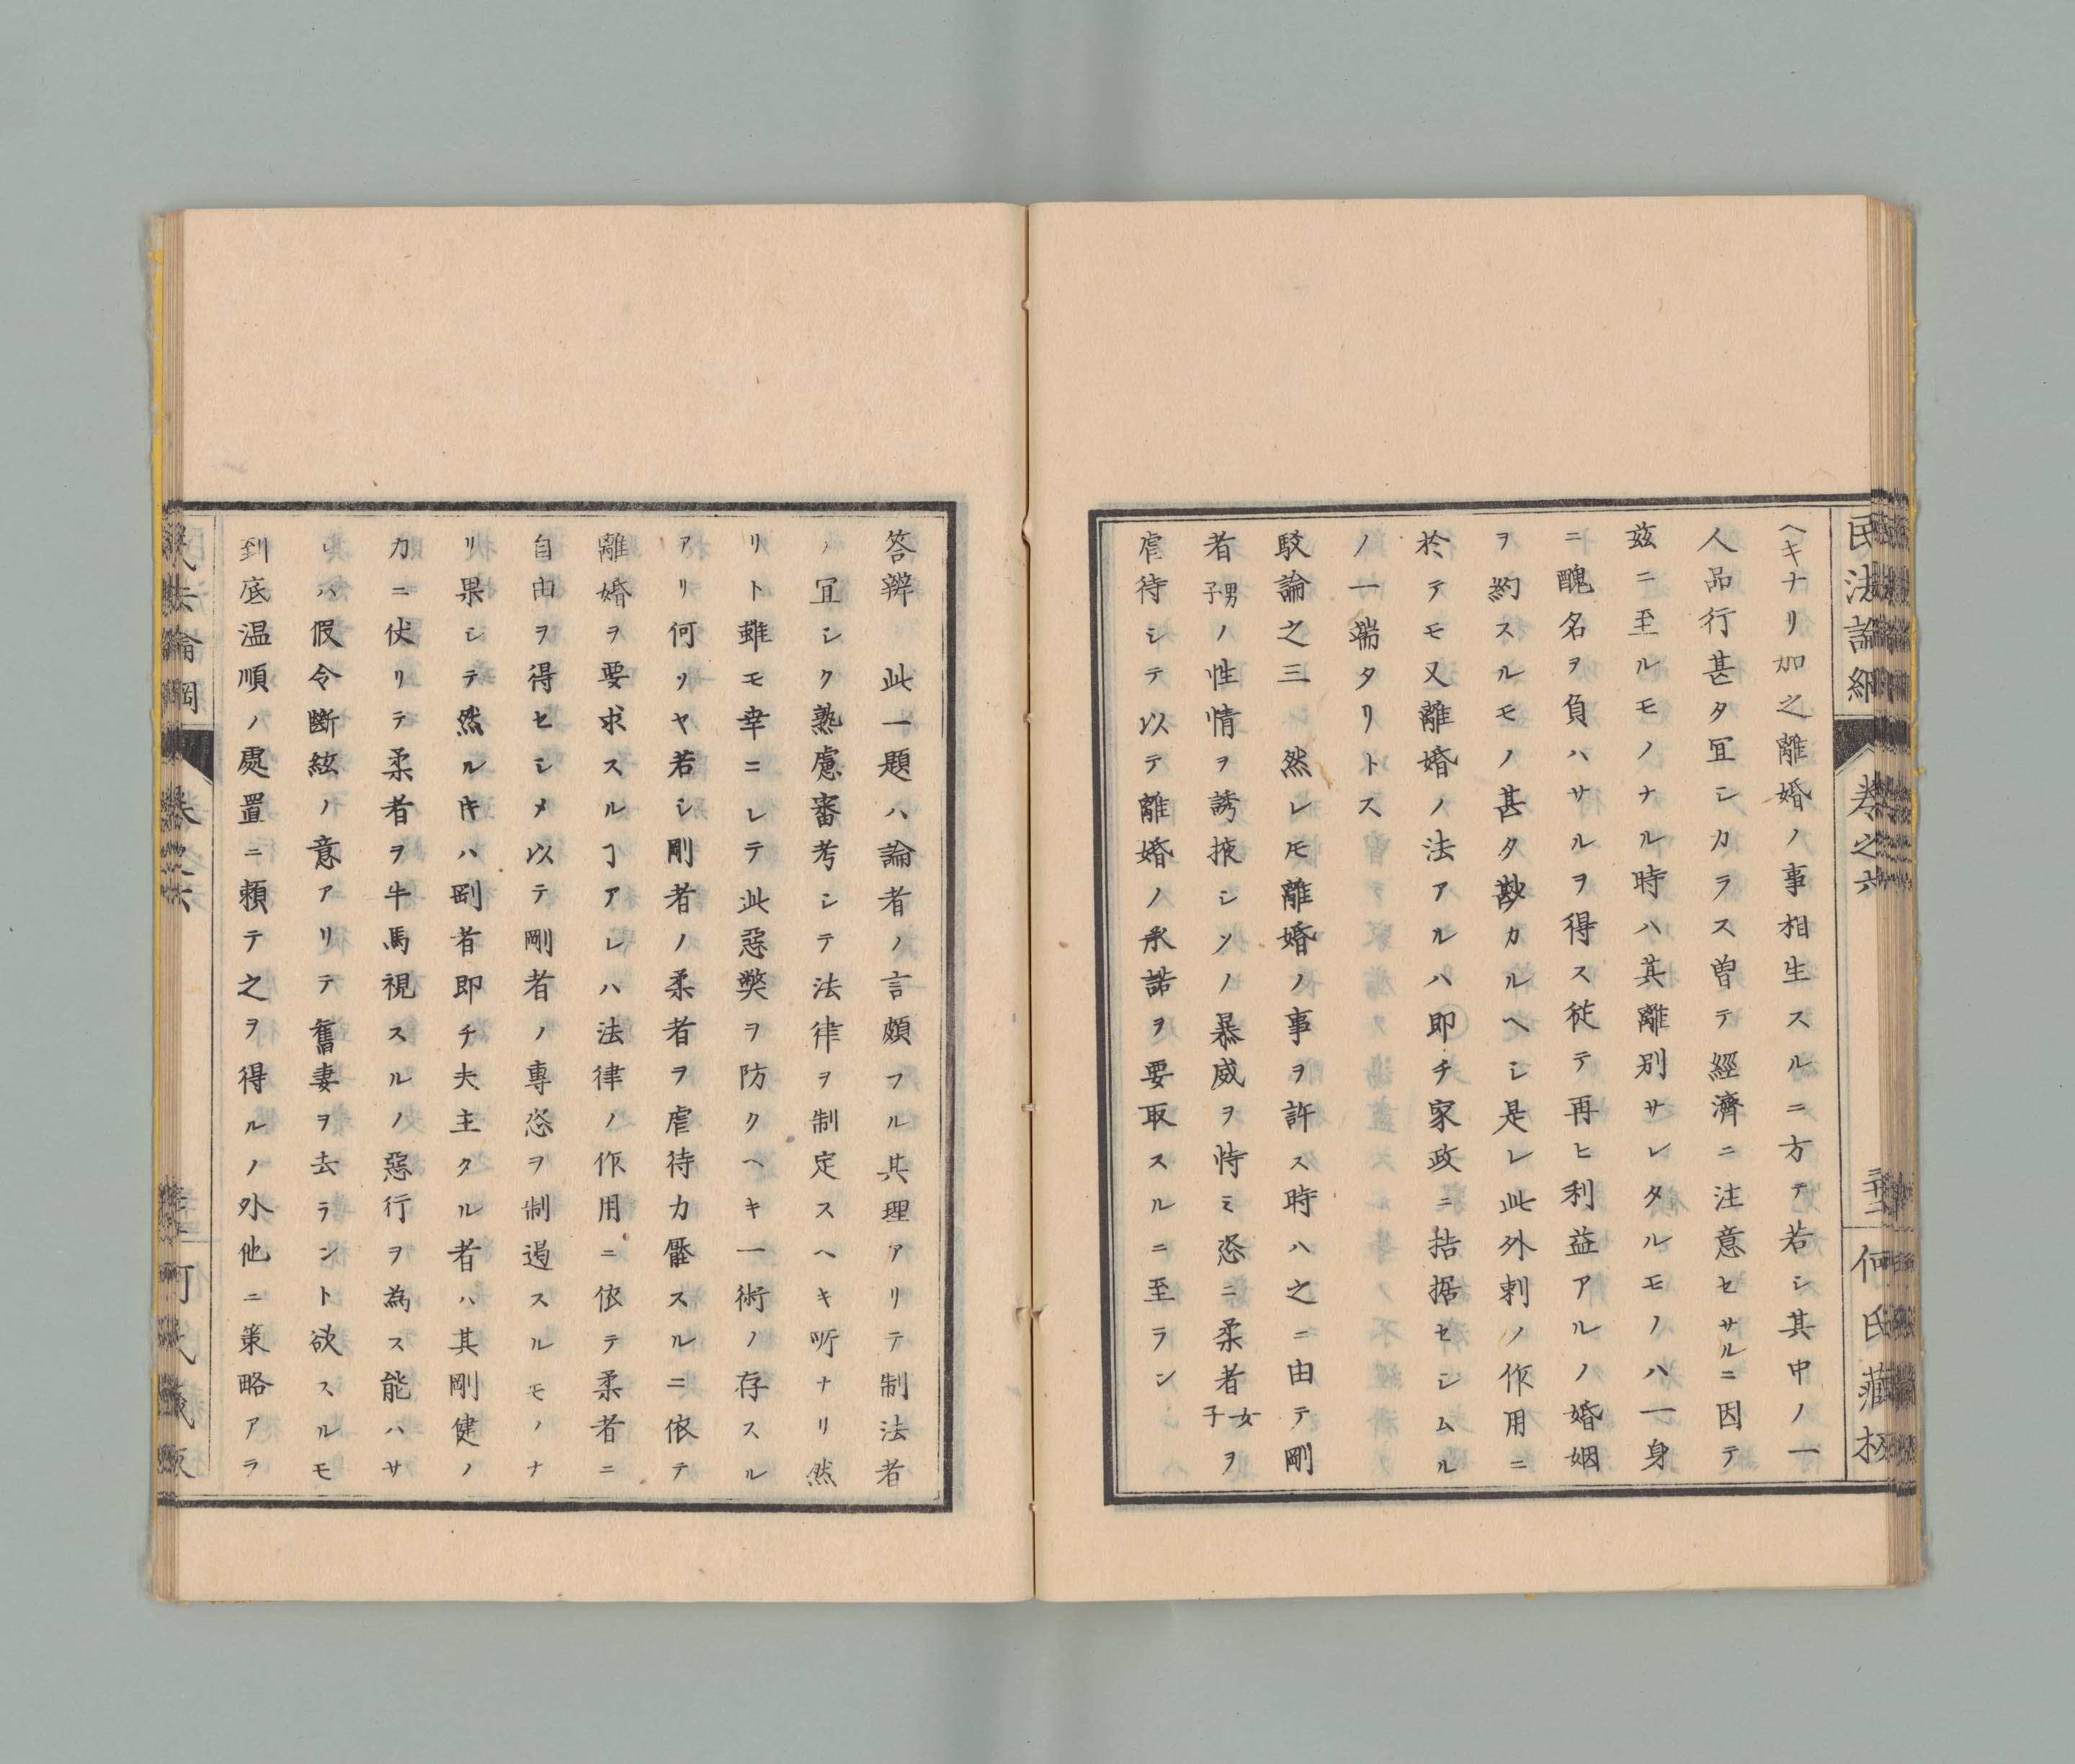 民法論綱 卷之六 何氏藏板
ヘキナリ加之離婚ノ事相生スルニ方テ若シ其中ノ一
人品行甚タ冝シカラス曽テ經濟ニ注意セサルニ因テ
茲ニ至ルモノナル時ハ其離別サレタルモノハ一身
ニ醜名ヲ負ハサルヲ得ス從テ再ヒ利益アルノ婚姻
ヲ約スルモノ甚タ尠カルヘシ是レ此外刺ノ作用ニ
於テモ又離婚ノ法アルハ即チ家政ニ拮据セシムル
ノ一端タリトス
駁論之三 然レ𪜈離婚ノ事ヲ許ス時ハ之ニ由テ剛
者男子ノ性情ヲ誘掖シソノ暴威ヲ恃ミ恣ニ柔者女子ヲ
虐待シテ以テ離婚ノ承諾ヲ要取スルニ至ラン
答辨 此一題ハ論者ノ言頗フル其理アリテ制法者
ノ冝シク熟慮審考シテ法律ヲ制定スヘキ所ナリ然
リト雖モ幸ニレテ此惡獘ヲ防クヘキ一術ノ存スル
アリ何ソヤ若シ剛者ノ柔者ヲ虐待カ罹スルニ依テ
離婚ヲ要求スルヿアレハ法律ノ作用ニ依テ柔者ニ
自由ヲ得セシメ以テ剛者ノ專恣ヲ制遏スルモノナ
リ果シテ然ルキハ剛者即チ夫主タル者ハ其剛健ノ
力ニ伏リテ柔者ヲ牛馬視スルノ惡行ヲ為ス能ハサ
レハ假令斷絃ノ意アリテ舊妻ヲ去ラント欲スルモ
到底温順ノ處置ニ頼テ之ヲ得ルノ外他ニ策略アラ
民法論綱 卷之六